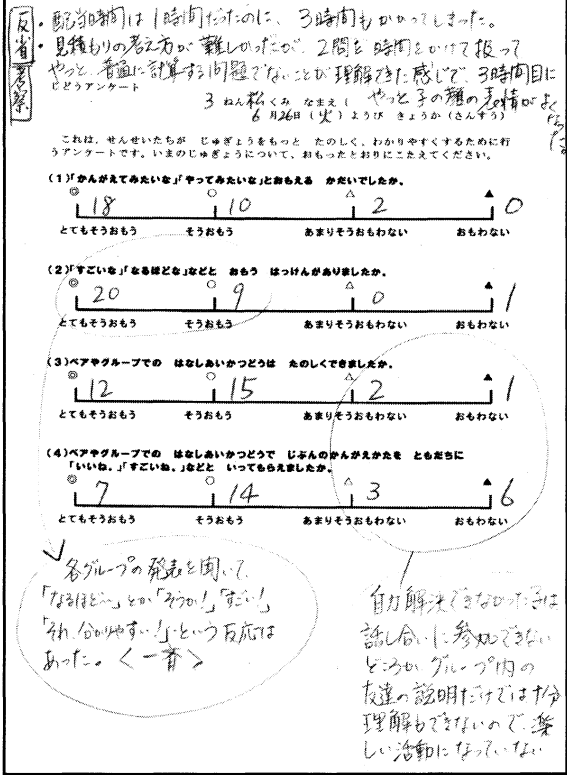 反省 考察
・配当時間は1時間だったのに、3時間もかかってしまった。
・見積もりの考え方が難しかったが、2問を時間をかけて扱って
やっと、普通に計算する問題でないことが理解できた感じで、3時間目に
やっと子の顔の表情がよくなった。
じどうアンケート
3 ねん 松 くみ なまえ(
6 月 26 日(火)ようび きょうか(さんすう)
これは、せんせいたちが じゅぎょうをもっと たのしく、わかりやすくするために行
うアンケートです。いまのじゅぎょうについて、おもったとおりにこたえてください。
(1)「かんがえてみたいな」「やってみたいな」とおもえる かだいでしたか。
◎ 18 ○ 10 △ 2 ▲ 0
とてもそうおもう そうおもう あまりそうおもわない おもわない
(2)「すごいな」「なるほどな」などと おもう はっけんがありましたか。
◎ 20 ○ 9 △ 0 ▲ 1
とてもそうおもう そうおもう あまりそうおもわない おもわない
(3)ペアやグループでの はなしあいかつどうは たのしくできましたか。
◎ 12 ○ 15 △ 2 ▲ 1
とてもそうおもう そうおもう あまりそうおもわない おもわない
(4)ペアやグループでの はなしあいかつどうで じぶんのかんがえかたを ともだちに
「いいね。」「すごいね。」などと いってもらえましたか。
◎ 7 ○ 14 △ 3 ▲ 6
とてもそうおもう そうおもう あまりそうおもわない おもわない
各グループの発表を聞いて、
「なるほど〜」とか「そうか!」「すごい!」
「それ、分かりやすい!」という反応は
あった。<一斉>
自力解決できなかった子は
話し合いに参加できない
どころか グループ内の
友達の説明だけでは十分
理解もできないので、楽
しい活動になっていない